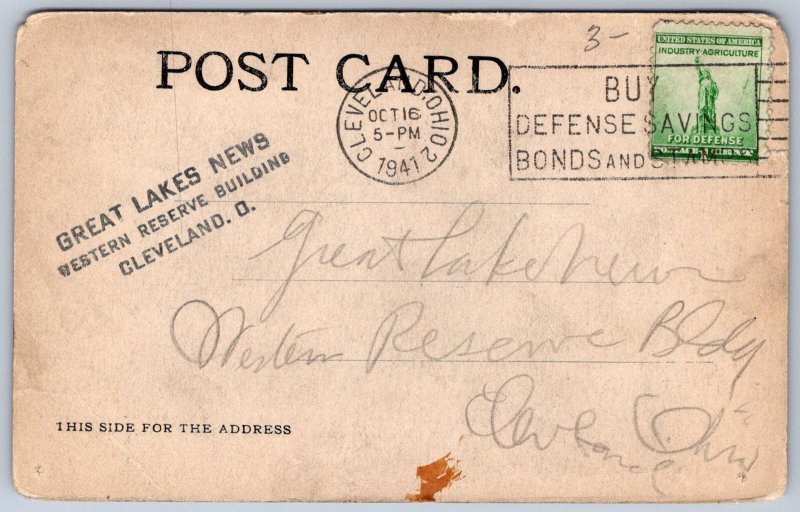 3-
POST CARD.
CLEVELAND, OHIO 2
OCT 16
5-PM
1941
BUY
DEFENSE SAVINGS
BONDS AND STAM
UNITED STATES OF AMERICA
INDUSTRY-AGRICULTURE
FOR DEFENSE
GREAT LAKES NEWS
WESTERN RESERVE BUILDING
CLEVELAND. O.
Great Lake News
Western Reserve Bldg
Cleveland Ohio
THIS SIDE FOR THE ADDRESS